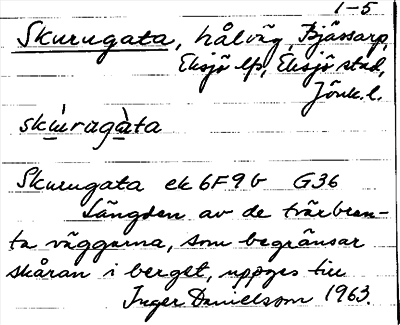 1-5
Skurugata, hålväg, Bjässarp,
Eksjö lfs, Eksjö stad,
Jönk.l.
skùrugàta
Skurugata ek 6F9b G36
Längden av de tvärbran-
ta väggarna, som begränsar
skåran i berget, uppges till
Inger Danielsson 1963.